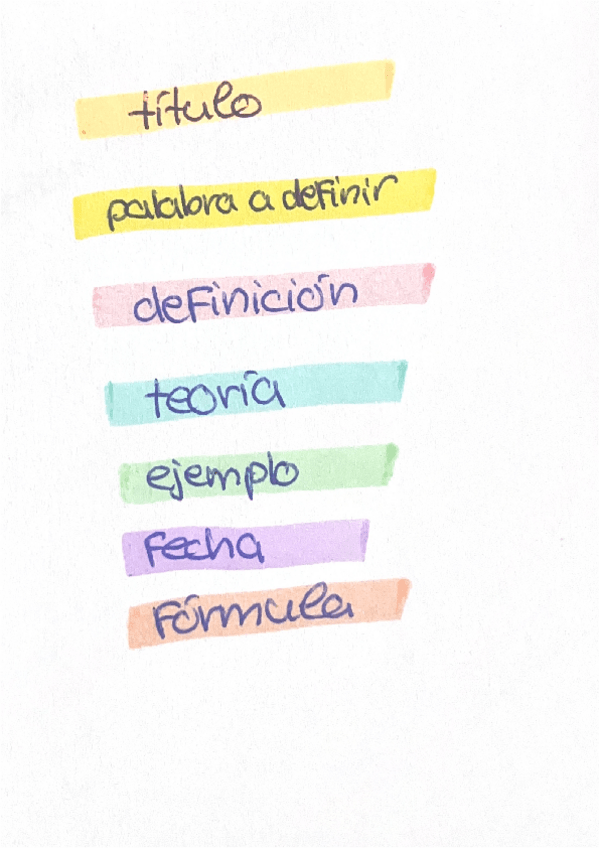 título
palabra a definir
definición
teoría
ejemplo
fecha
fórmula